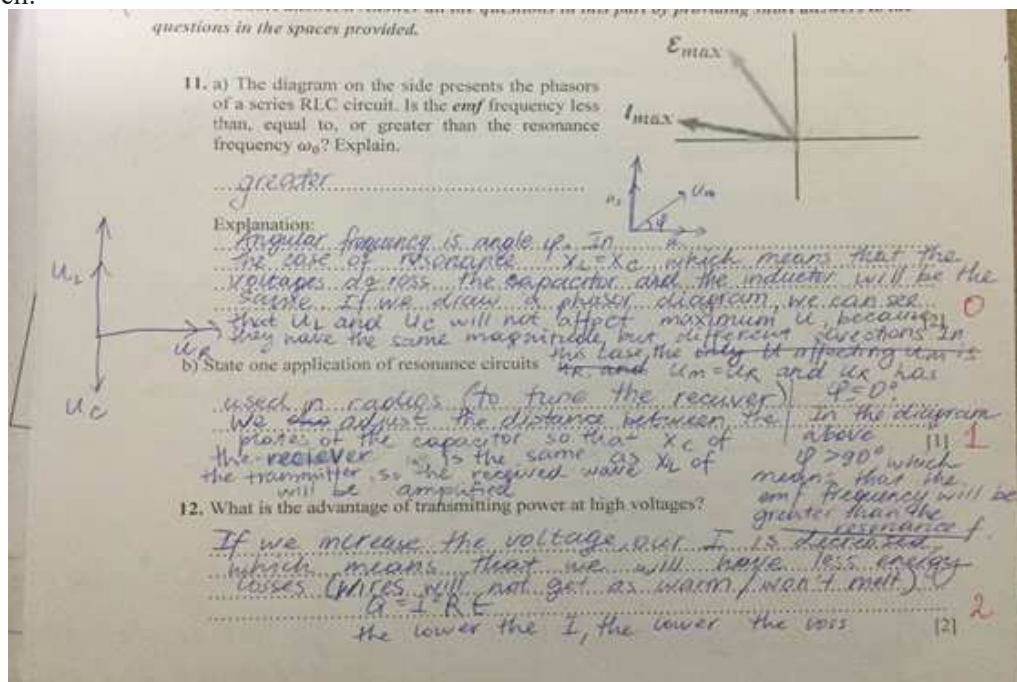 ch.
questions in the spaces provided.
11. a) The diagram on the side presents the phasors
of a series RLC circuit. Is the emf frequency less
than, equal to, or greater than the resonance
frequency ω₀? Explain.
Ɛmax
Imax
greater
Um
φ
Explanation:
Angular frequency is angle φ. In
the case of resonance XL = XC which means that the
voltages across the capacitor and the inductor will be the
same. If we draw a phasor diagram, we can see
that UL and UC will not affect maximum U, because
they have the same magnitude, but different directions. In
this case, the only U affecting Um is
UR and Um = UR and UR has
φ = 0°.
In the diagram
above
φ > 90° which
means that the
emf frequency will be
greater than the
resonance f.
[2] 0
UL
UR
UC
b) State one application of resonance circuits
used in radios (to tune the reciver)
We adjust the distance between the
plates of the capacitor so that XC of
the reciever is the same as XL of
the transmitter, so the received wave
will be amplified
[1] 1
12. What is the advantage of transmitting power at high voltages?
If we increase the voltage, our I is decreased,
which means that we will have less energy
losses (wires will not get as warm / won't melt)
Q = I²Rt
the lower the I, the lower the
[2] 2